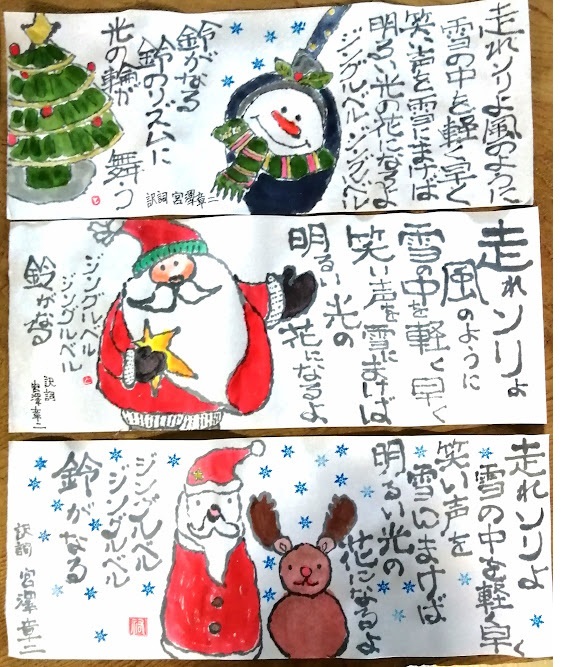 走れソリよ風のように
雪の中を軽く早く
笑い声を雪にまけば
明るい光の花になるよ
ジングルベル・ジングルベル
鈴がなる
鈴のリズムに
光の輪が舞う
訳詞 宮澤章二
走れソリよ
風のように
雪の中を軽く早く
笑い声を雪にまけば
明るい光の
花になるよ
ジングルベル
ジングルベル
鈴がなる
訳詞
宮澤章二
走れソリよ
雪の中を軽く早く
笑い声を
雪にまけば
明るい光の
花になるよ
ジングルベル
ジングルベル
鈴がなる
訳詞 宮澤章二